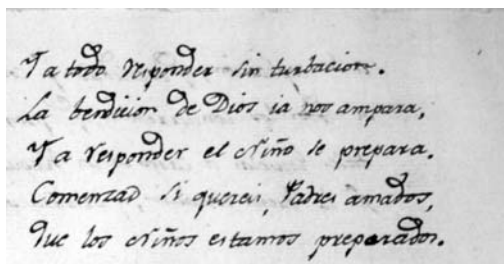 Y a todo responder sin turbacion.
La bendicion de Dios ia nos ampara,
Y a responder el Niño se prepara.
Comenzad si quereis, Padres amados,
Que los Niños estamos preparados.